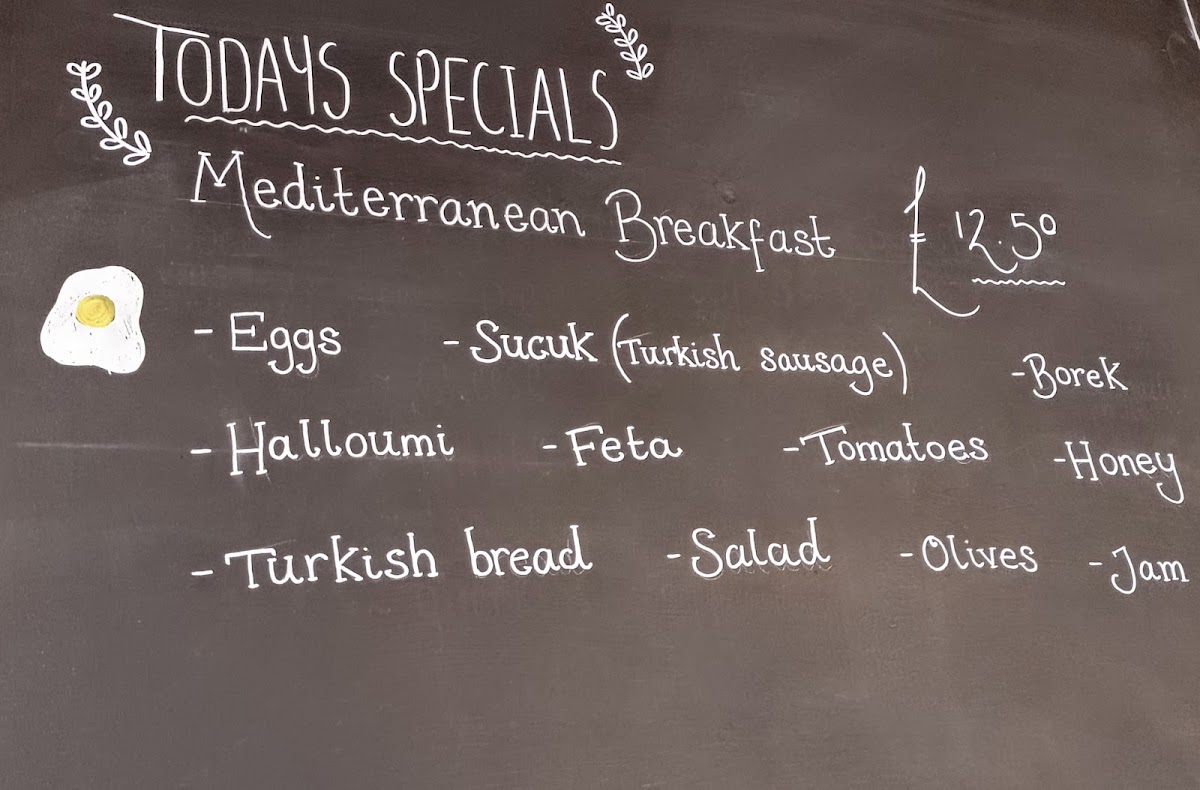 TODAYS SPECIALS
Mediterranean Breakfast £12.50
- Eggs - Sucuk (Turkish sausage) - Borek
- Halloumi - Feta - Tomatoes - Honey
- Turkish bread - Salad - Olives - Jam